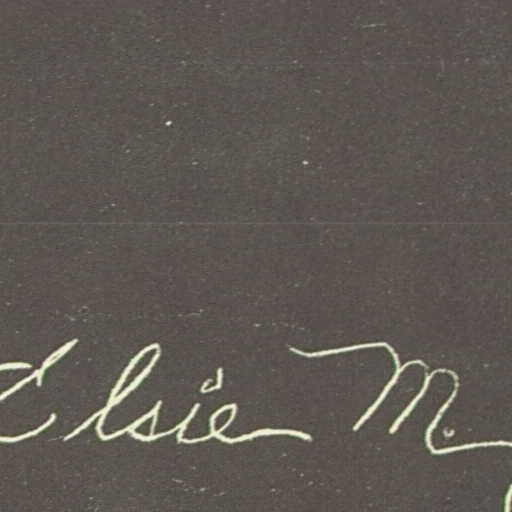 Elsie M.